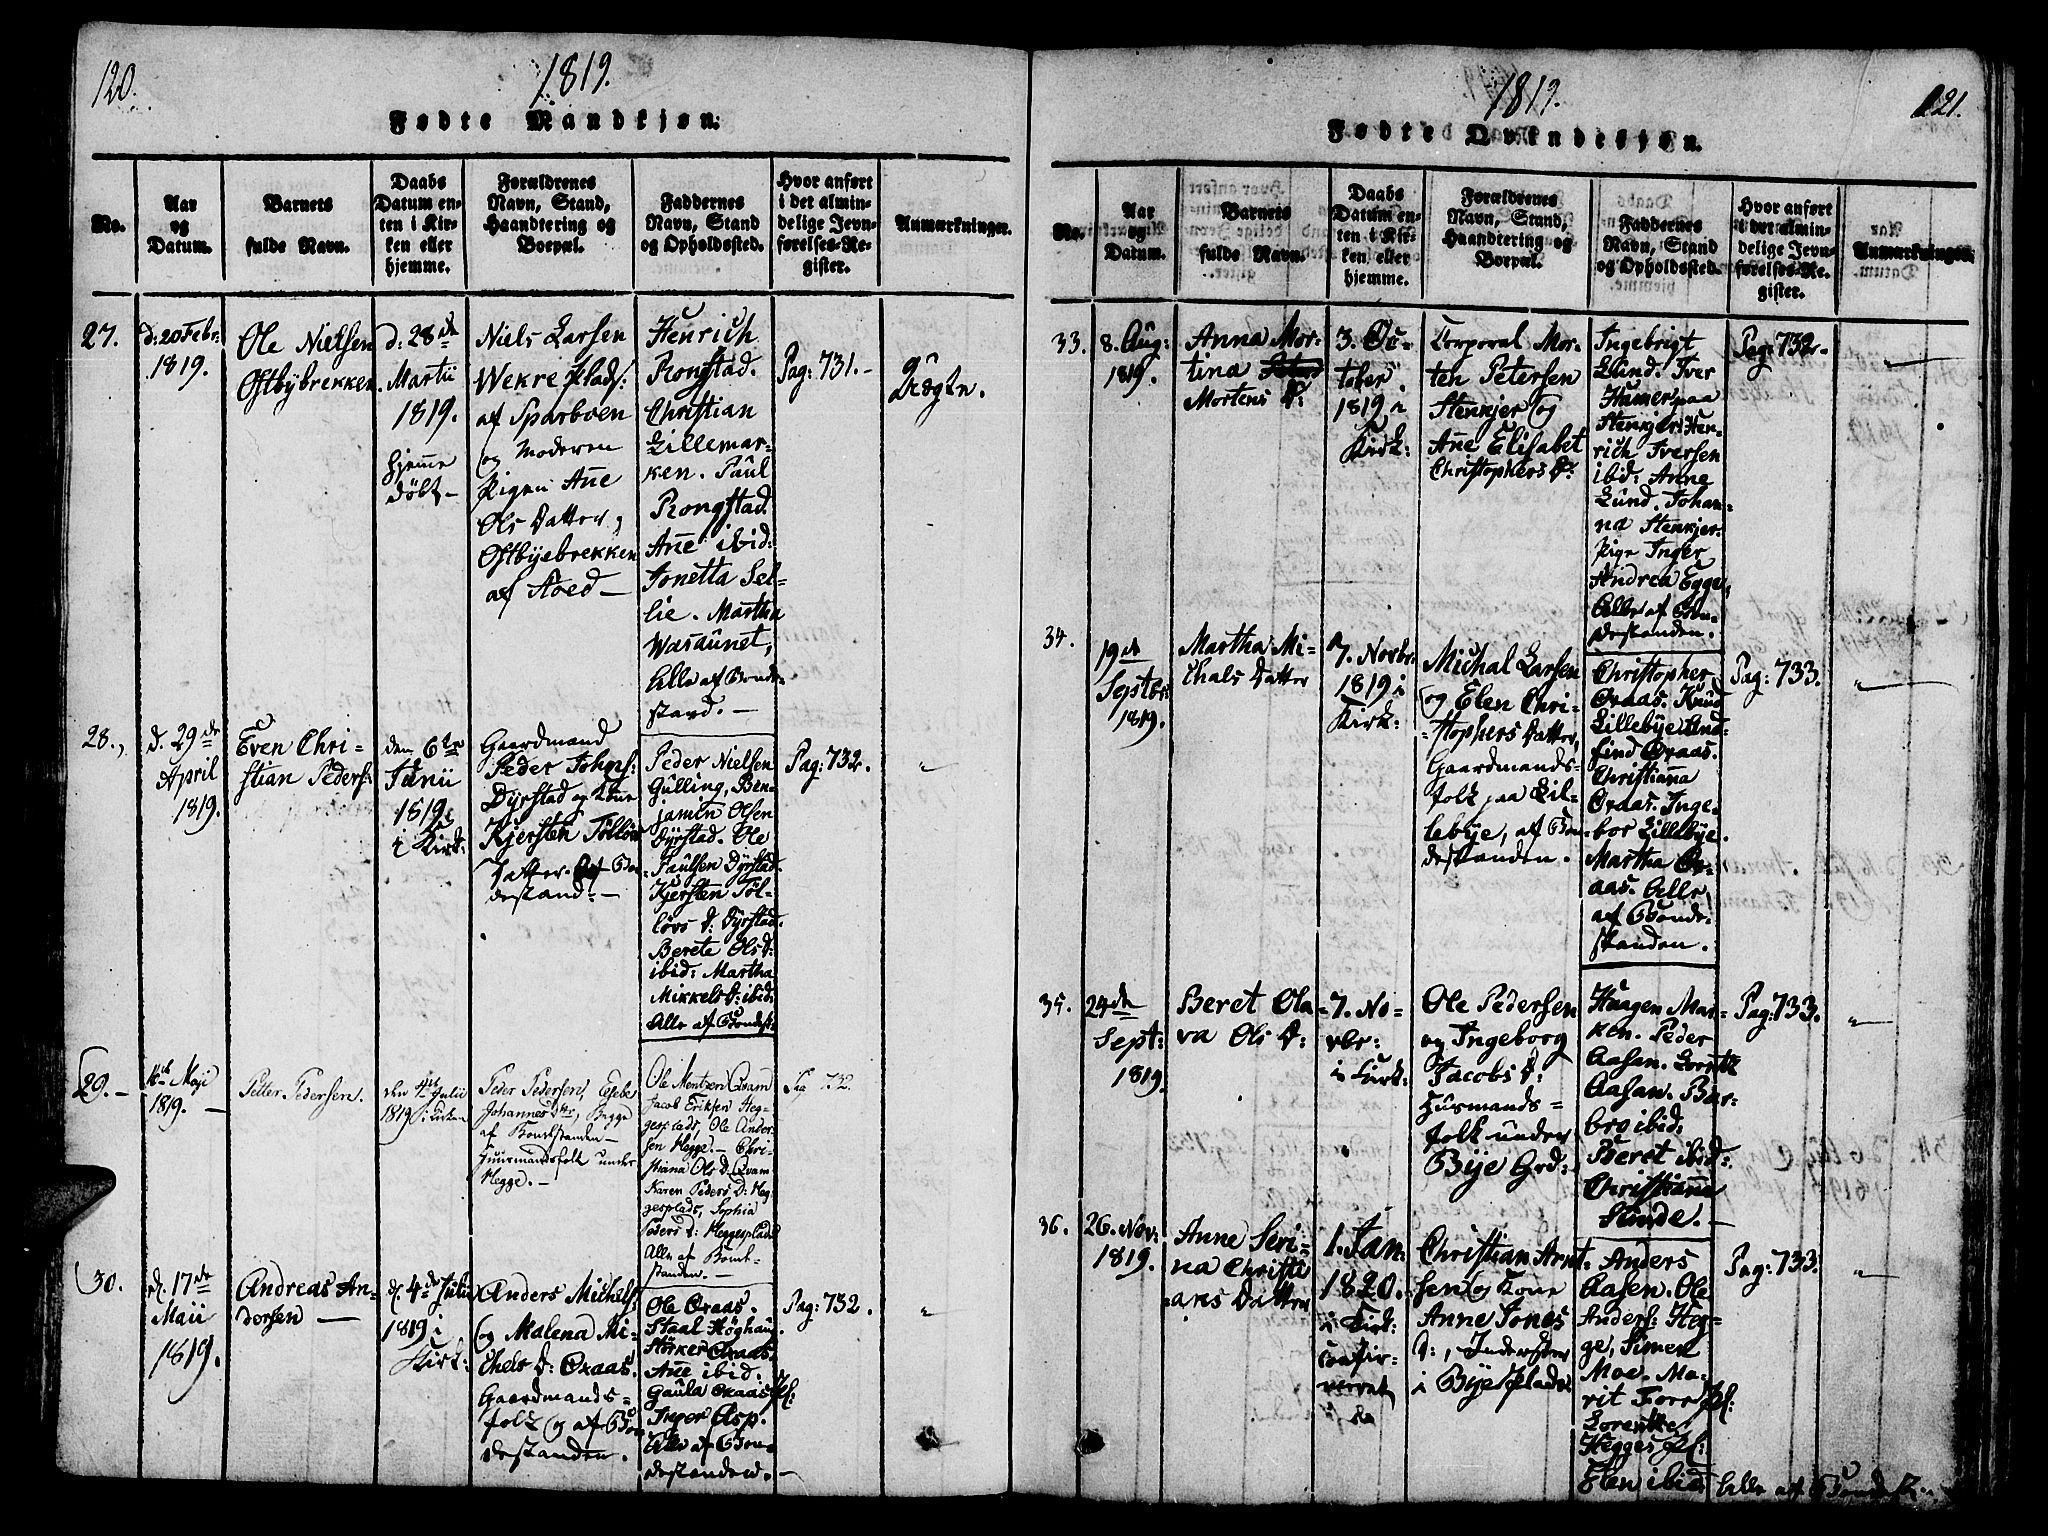 120.
1819.
Fødte Mandkjøn.
No.
Aar
og
Datum.
Barnets
fulde Navn.
Daabs
Datum en-
ten i Kir-
ken eller
hjemme.
Forældrenes
Navn, Stand,
Haandtering og
Boepæl.
Faddernes
Navn, Stand
og Opholdssted.
Hvor anført
i det almin-
delige Jevn-
førelses-Re-
gister.
Anmærkninger.
27.
d: 20 Febr:
1819.
Ole Nielsen
Østbybrekken
d: 28de
Martii
1819.
hjemme
døbt –
Niels Larsen
Wekre plads:
af Sparboen
og Moderen
Pigen Ane
Ols Datter,
Østbyebrekken
af Stoed –
Henrich
Rongstad.
Christian
Lillemar-
ken. Paul
Rongstad.
Ane ibid:
Jonetta Sel-
lie. Martha
Wasaunet,
Alle af Bonde-
stand. –
Pag: 731. –
Uægte.
28.
d. 29de
April
1819.
Even Chri-
stian Peders:
den 6te
Junii
1819
i Kirk:
Gaardmand
Peder Johns:
Dyrstad og Kone
Kjersten Tølløvs
Datter. Af Bon-
destand: –
Peder Nielsen
Gulling, Ben-
jamin Olsen
Dyrstad. Ole
Paulsen Dyrstad.
Kjersten Tøl-
løvs D: Dyrstad.
Berete Ols D:
ibid: Martha
Mikkels D: ibid:
Alle af Bondest:
Pag: 732.
"
29. –
16de Maji
1819. –
Petter Pedersen.
den 4de Julii
1819 i Kirken
Peder Pedersen,
Johannes Dtr, Begge
af Bondestanden –
Huusmandsfolk under
Hegge. –
Ole Mentzen Qvam
Jacob Eriksen Heg-
gesplads, Ole Ander-
sen Hegge. – Chri-
stiana Ols D: Qvam
Karen Peders D: Heg-
gesplads, Sophia
Peders D: Heggesplads
Alle af Bonde-
standen. –
Pag 732.
30.
d. 17de
Maii
1819.
Andreas An-
dersen –
d. 4de Julii
1819 i
Kirk:
Anders Michels:
og Malena Mi-
chels D: Oxaas.
Gaardmands-
folk og af Bon-
destanden.
Ole Oxaas.
Staal Høghaug.
Hosker Oxaas.
Ane ibid:
Gaula Oxaas pl:
Inger Asp.
Alle af Bon-
destanden. –
Pag: 732.
"
1819.
121.
Fødte Qvindekjøn.
No.
Aar
og
Datum.
Barnets
fulde Navn.
Daabs
Datum en-
ten i Kir-
ken eller
hjemme.
Forældrenes
Navn, Stand,
Haandtering og
Boepæl.
Faddernes
Navn, Stand
og Opholdssted.
Hvor anført
i det almin-
delige Jevn-
førelses-Re-
gister.
Anmærkninger.
33.
8. Aug:
1819.
Anna Mor-
tina
Mortens D:
3. Oc-
tober
1819 i
Kirk:
Corporal Mor-
ten Petersen
Stenkjer og
Ane Elisabet
Christophers D:
Ingebrigt
Lund. Iver
Hamer paa
Stenkjer. Hen-
rich Iversen
ibid: Anne
Lund. Johan-
na Stenkjer.
Pige Inger
Andrea Egge,
Alle af Bon-
destanden.
Pag: 732.
"
34.
19de
Septbr:
1819.
Martha Mi-
chals Datter
7. Novbr:
1819 i
Kirk:
Michal Larsen
og Elen Chri-
stophers Datter,
Gaardmands-
folk paa Lil-
lebye, af Bon-
destanden.
Christopher
Oxaas. Knud
Lillebye. And-
find Oxaas.
Christiana
Oxaas. Inge-
bor Lillebye.
Martha Ox-
aas. Alle
af Bonde-
standen.
Pag: 733.
"
35.
24de
Sept:
1819.
Beret Ola-
va Ols D:
7. No-
vbr:
i Kirk:
Ole Pedersen
og Ingeborg
Jacobs D:
Huusmands-
folk under
Bye Grd:
Haagen Mar-
ken. Peder
Aasan. Lorentz
Aasan. Bar-
bro ibid:
Beret ibid:
Christiana
Sunde. –
Pag: 733.
"
36.
26. Nov:
1819.
Anne Seri-
na Christi-
ans Datter
1. Jan:
1820.
i Kirk:
confir-
meret
Christian Arnt-
sen og Kone
Anne Jones
D:, Inderster
i Bye Pladse
Anders
Aasen. Ole
Anders: Heg-
ge, Simen
Moe. Ma-
rit Forr pl:
Lorentze
Hegges pl:
Elen ibid:
Alle af Bondest:
Pag: 733.
"